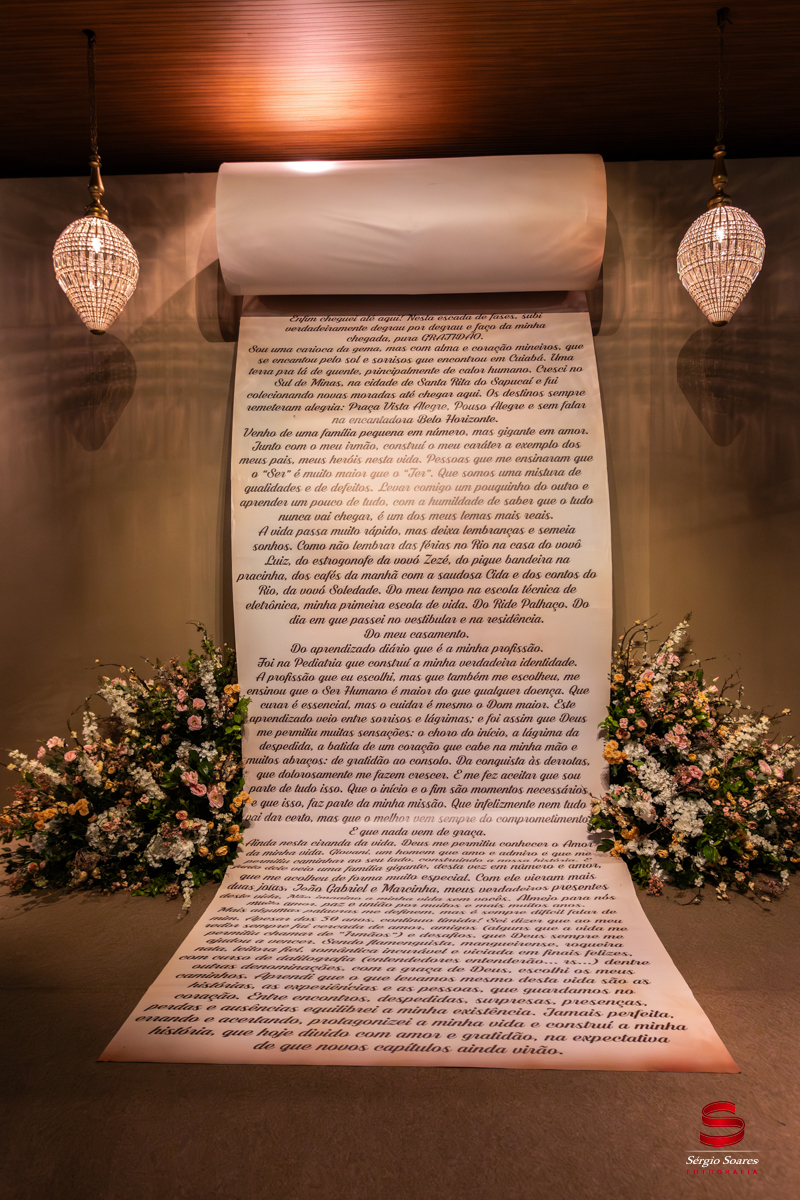 Enfim cheguei até aqui! Nesta escada de fases, subi
verdadeiramente degrau por degrau e faço da minha
chegada, pura GRATIDÃO.
Sou uma carioca da gema, mas com alma e coração mineiros, que
se encantou pelo sol e sorrisos que encontrou em Cuiabá. Uma
terra pra lá de quente, principalmente de calor humano. Cresci no
Sul de Minas, na cidade de Santa Rita do Sapucaí e fui
colecionando novas moradas até chegar aqui. Os destinos sempre
remeteram alegria: Praça Vista Alegre, Pouso Alegre e sem falar
na encantadora Belo Horizonte.
Venho de uma família pequena em número, mas gigante em amor.
Junto com o meu irmão, construí o meu caráter a exemplo dos
meus pais, meus heróis nesta vida. Pessoas que me ensinaram que
o "Ser" é muito maior que o "Ter". Que somos uma mistura de
qualidades e de defeitos. Levar comigo um pouquinho do outro e
aprender um pouco de tudo, com a humildade de saber que o tudo
nunca vai chegar, é um dos meus lemas mais reais.
A vida passa muito rápido, mas deixa lembranças e semeia
sonhos. Como não lembrar das férias no Rio na casa do vovô
Luiz, do estrogonofe da vovó Zezé, do pique bandeira na
pracinha, dos cafés da manhã com a saudosa Cida e dos contos do
Rio, da vovó Soledade. Do meu tempo na escola técnica de
eletrônica, minha primeira escola de vida. Do Ride Palhaço. Do
dia em que passei no vestibular e na residência.
Do meu casamento.
Do aprendizado diário que é a minha profissão.
Foi na Pediatria que construí a minha verdadeira identidade.
A profissão que eu escolhi, mas que também me escolheu, me
ensinou que o Ser Humano é maior do que qualquer doença. Que
curar é essencial, mas o cuidar é mesmo o Dom maior. Este
aprendizado veio entre sorrisos e lágrimas; e foi assim que Deus
me permitiu muitas sensações: o choro do início, a lágrima da
despedida, a batida de um coração que cabe na minha mão e
muitos abraços: de gratidão ao consolo. Da conquista às derrotas,
que dolorosamente me fazem crescer. E me fez aceitar que sou
parte de tudo isso. Que o início e o fim são momentos necessários
e que isso, faz parte da minha missão. Que infelizmente nem tudo
vai dar certo, mas que o melhor vem sempre do comprometimento
E que nada vem de graça.
Ainda nesta ciranda da vida, Deus me permitiu conhecer o Amor
da minha vida. Giovani, um homem que amo e admiro e que me
permitiu caminhar ao seu lado, construindo a nossa história. E
dele veio uma família gigante, desta vez em número e amor,
que me acolheu de forma muito especial. Com ele vieram mais
duas joias, João Gabriel e Marcinha, meus verdadeiros presentes
desta vida. Não imagino a minha vida sem vocês. Almejo para nós
muito amor, paz e união por muitos e muitos anos.
Mais algumas palavras me definem, mas é sempre difícil falar de
mim. Apesar dos 50 anos, continuo tímida! Sei dizer que ao meu
redor sempre fui cercada de amor, amigos (alguns que a vida me
permitiu chamar de "Irmãos") e desafios, que Deus sempre me
ajudou a vencer. Sendo flamenguista, mangueirense, roqueira
nata, leitora fiel, romântica incurável e viciada em finais felizes,
com curso de datilografia (entendedores entenderão... rs...) dentre
outras denominações, com a graça de Deus, escolhi os meus
caminhos. Aprendi que o que levamos mesmo desta vida são as
histórias, as experiências e as pessoas, que guardamos no
coração. Entre encontros, despedidas, surpresas, presenças,
perdas e ausências equilibrei a minha existência. Jamais perfeita,
errando e acertando, protagonizei a minha vida e construí a minha
história, que hoje divido com amor e gratidão, na expectativa
de que novos capítulos ainda virão.
Sérgio Soares
FOTOGRAFIA